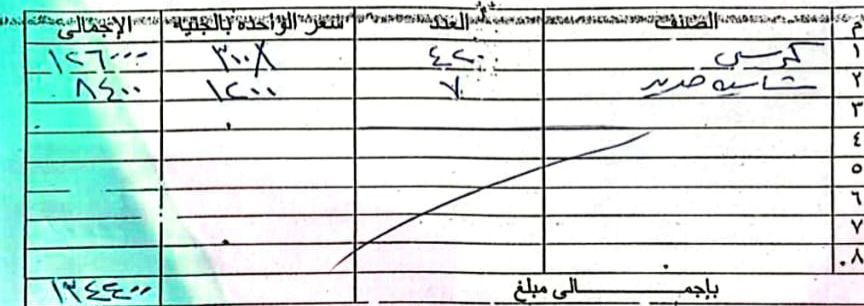 م الصنف العدد سعر الواحدة بالجنية الإجمالى
١ كرسي ٤٢٠ ٣٠٠ ١٢٦٠٠٠
٢ شاسيه حديد ٧ ١٢٠٠ ٨٤٠٠
٣
٤
٥
٦
٧
٨
بإجمـــــــالى مبلغ ١٣٤٤٠٠